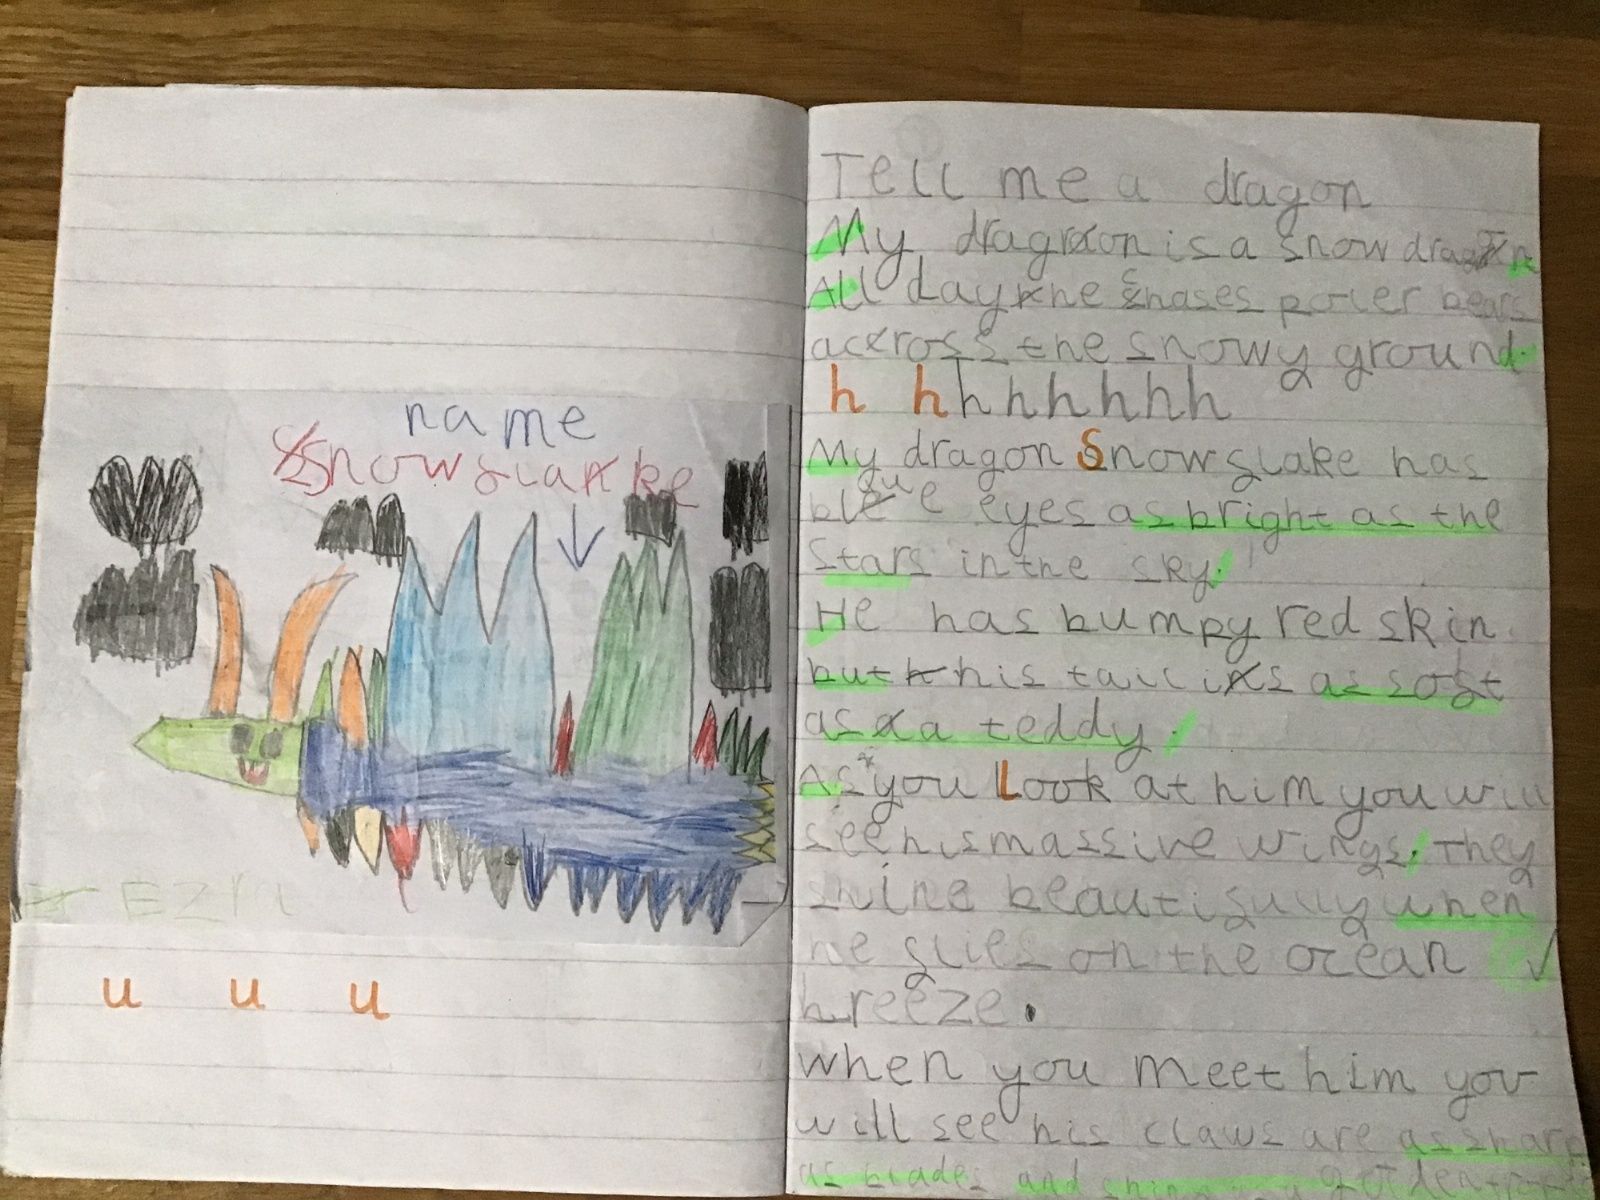 name
Snowslake
Ezra
u u u
Tell me a dragon
My dragon is a snow dragon
All day he chases poler bears
across the snowy ground.
h h h h h h h h
My dragon Snowslake has
blue eyes as bright as the
stars in the sky.
He has bumpy red skin
but his tail is as soft
as a teddy.
As you Look at him you will
see his massive wings. They
shine beautifully when
he flies on the ocean
breeze.
when you meet him you
will see his claws are as sharp
as blades and